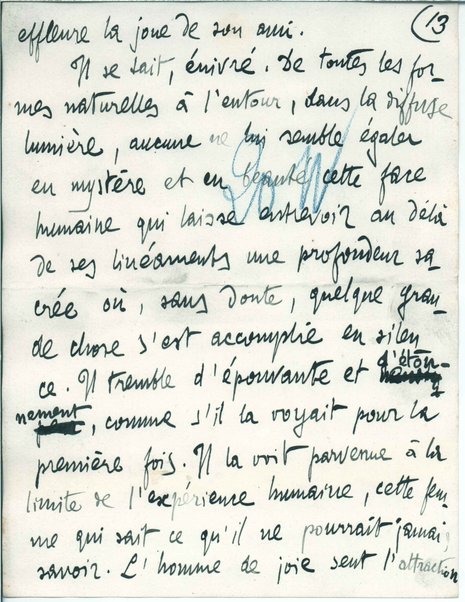 (13
effleure la joue de son ami.
Il se tait, énivré. De toutes les for-
mes naturelles à l'entour, dans la diffuse
lumière, aucune ne lui semble égaler
en mystère et en beauté cette face
humaine qui laisse entrevoir au delà
de ses linéaments une profondeur sa-
crée où, sans doute, quelque gran-
de chose s'est accomplie en silen-
ce. Il tremble d'épouvante et d'éton-
nement, comme s'il la voyait pour la
première fois. Il la voit parvenue à la
limite de l'expérience humaine, cette fem-
me qui sait ce qu'il ne pourrait jamais
savoir. L'homme de joie sent l'attraction